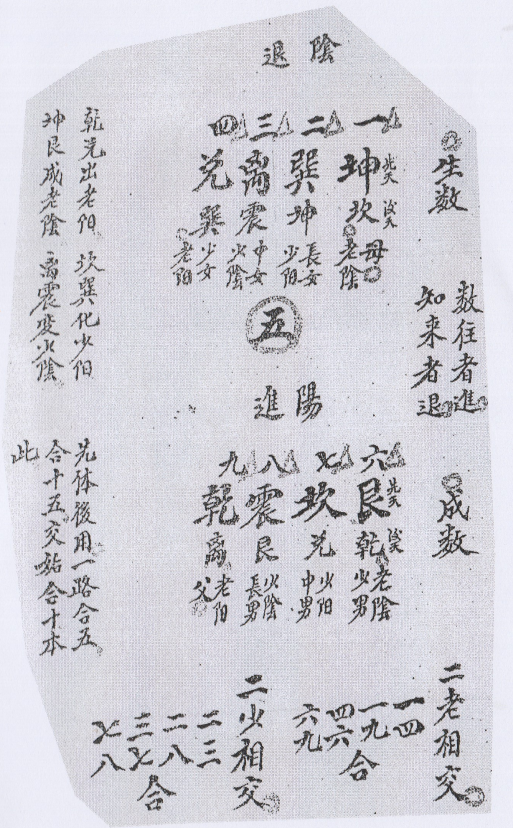 陰退
生数
一 坤 先天 坎 後天 母 老陰
二 巽 坤 長女 少阳
三 离 震 中女 少陰
四 兑 巽 少女 老阳
五
数往者進
知来者退
陽進
成数
六 艮 先天 乾 後天 老陰 少男
七 坎 兑 少阳 中男
八 震 艮 少陰 長男
九 乾 离 老阳 父
二老相交
一四
一九合
四六
六九
二少相交
二三
二八合
三七
七八
乾兑出老阳 坎巽化少阳
坤艮成老陰 离震变少陰
先体後用一路合五
合十五交站合十本
此